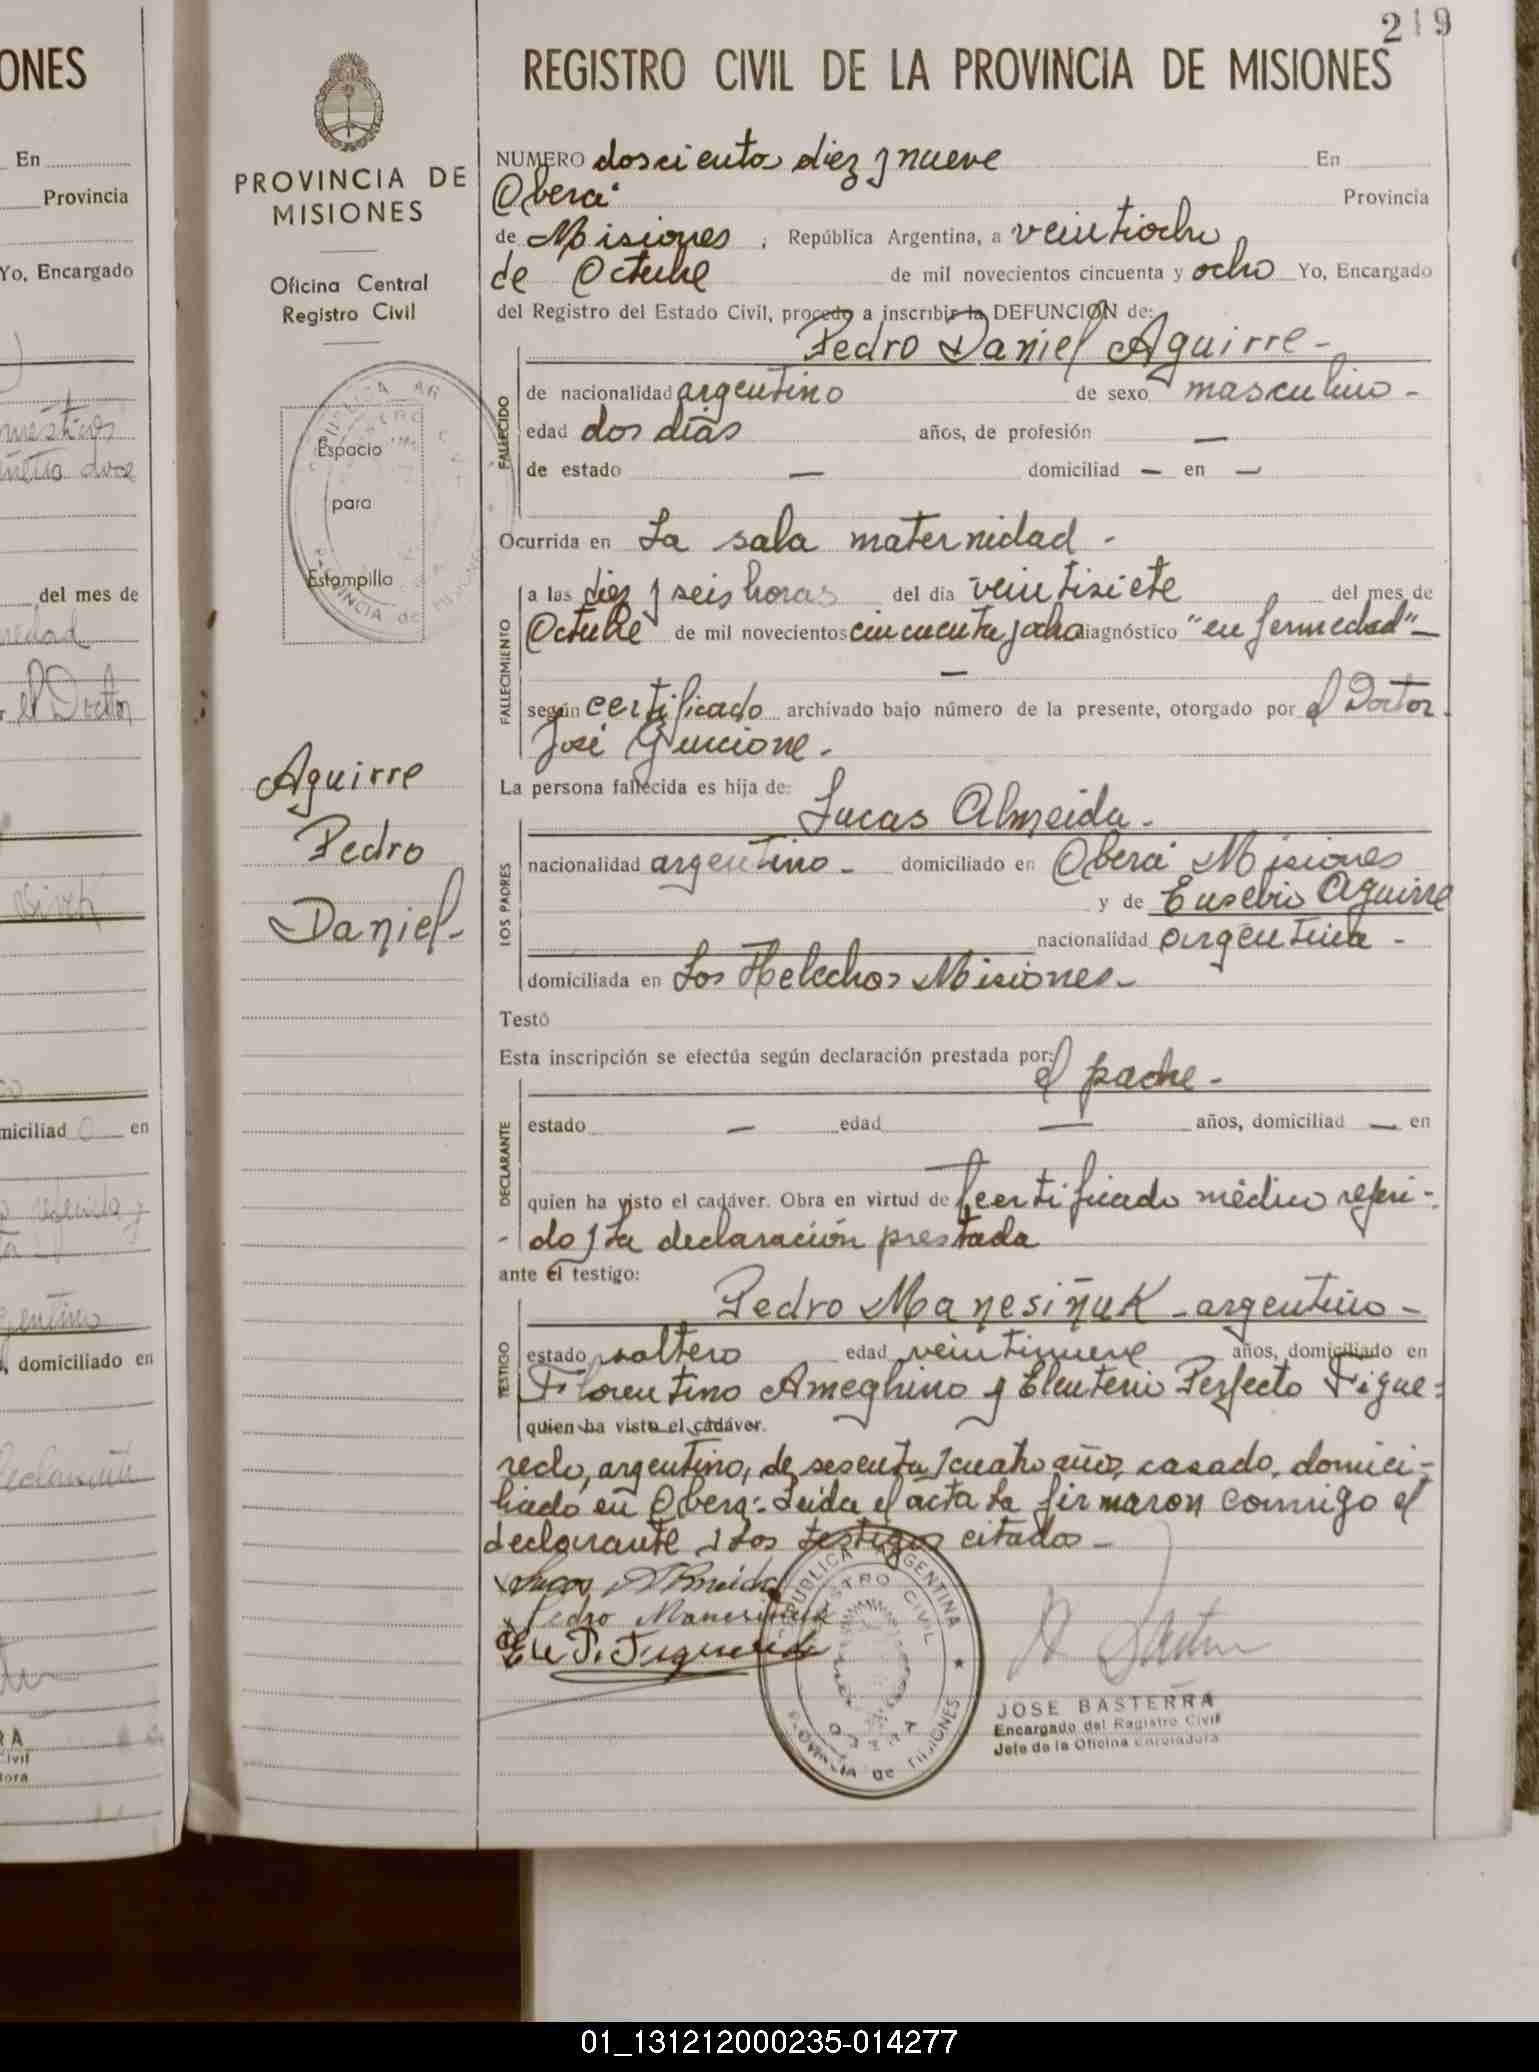 219
ONES
En
Provincia
Yo, Encargado
mésticos
del mes de
el Doctor
miciliad o en
, domiciliado en
PROVINCIA DE
MISIONES
Oficina Central
Registro Civil
Espacio
para
Estampilla
Aguirre
Pedro
Daniel-
REGISTRO CIVIL DE LA PROVINCIA DE MISIONES
NUMERO doscientos diez y nueve En
Oberá Provincia
de Misiones, República Argentina, a veintiocho
de Octubre de mil novecientos cincuenta y ocho Yo, Encargado
del Registro del Estado Civil, procedo a inscribir la DEFUNCION de:
Pedro Daniel Aguirre-
FALLECIDO
de nacionalidad argentino de sexo masculino-
edad dos dias años, de profesión —
de estado — domiciliad — en —
Ocurrida en La sala maternidad-
FALLECIMIENTO
a las diez y seis horas del dia veintisiete del mes de
Octubre de mil novecientos cincuenta y ocho diagnóstico "enfermedad"-
—
según certificado archivado bajo número de la presente, otorgado por el Doctor
José Guccione.
La persona fallecida es hija de:
Lucas Almeida-
LOS PADRES
nacionalidad argentino- domiciliado en Oberá Misiones
y de Eusebia Aguirre
nacionalidad argentina-
domiciliada en Los Helechos Misiones-
Testó
Esta inscripción se efectúa según declaración prestada por:
el padre-
DECLARANTE
estado — edad — años, domiciliad — en
quien ha visto el cadáver. Obra en virtud de certificado médico referi-
-do y la declaración prestada
ante el testigo:
Pedro Manesiñuk-argentino-
TESTIGO
estado soltero edad veintinueve años, domiciliado en
Florentino Ameghino y Eleuterio Perfecto Figue-
quien ha visto el cadáver.
redo, argentino, de sesenta y cuatro años, casado, domici-
liado en Oberá-. Leida el acta la firmaron conmigo el
declarante y los testigos citados-
Lucas Almeida
Pedro Manesiñuk
REPUBLICA ARGENTINA
REGISTRO CIVIL
OBERA
PROVINCIA de MISIONES
JOSE BASTERRA
Encargado del Registro Civil
Jefe de la Oficina Enroladora
01_131212000235-014277